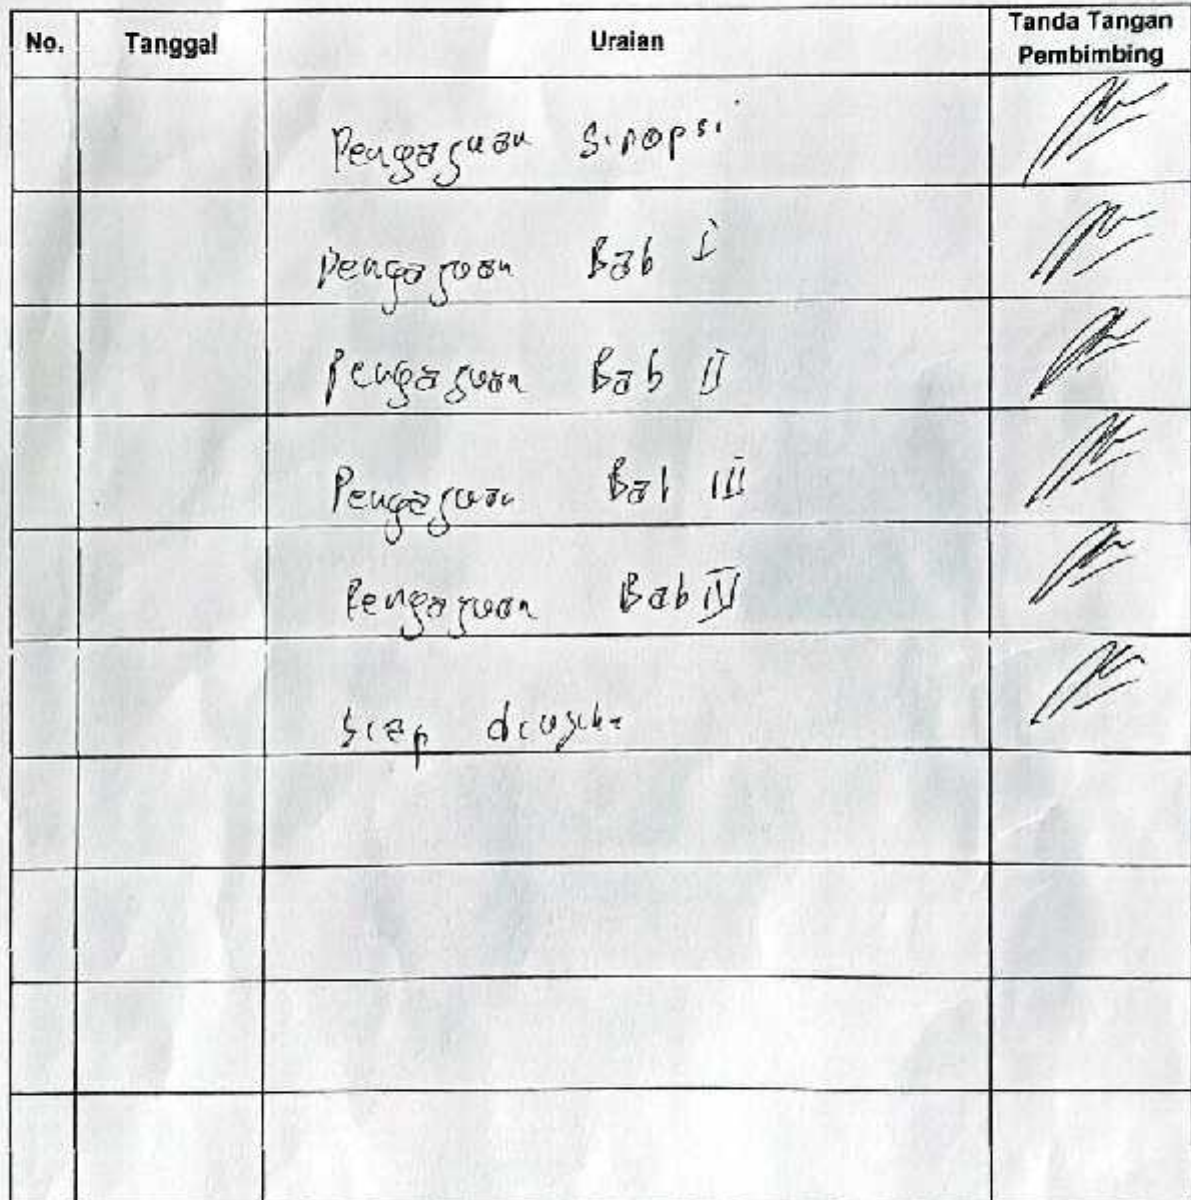 No. Tanggal Uraian Tanda Tangan Pembimbing
Pengajuan Sinopsi
Pengajuan Bab I
Pengajuan Bab II
Pengajuan Bab III
Pengajuan Bab IV
Siap